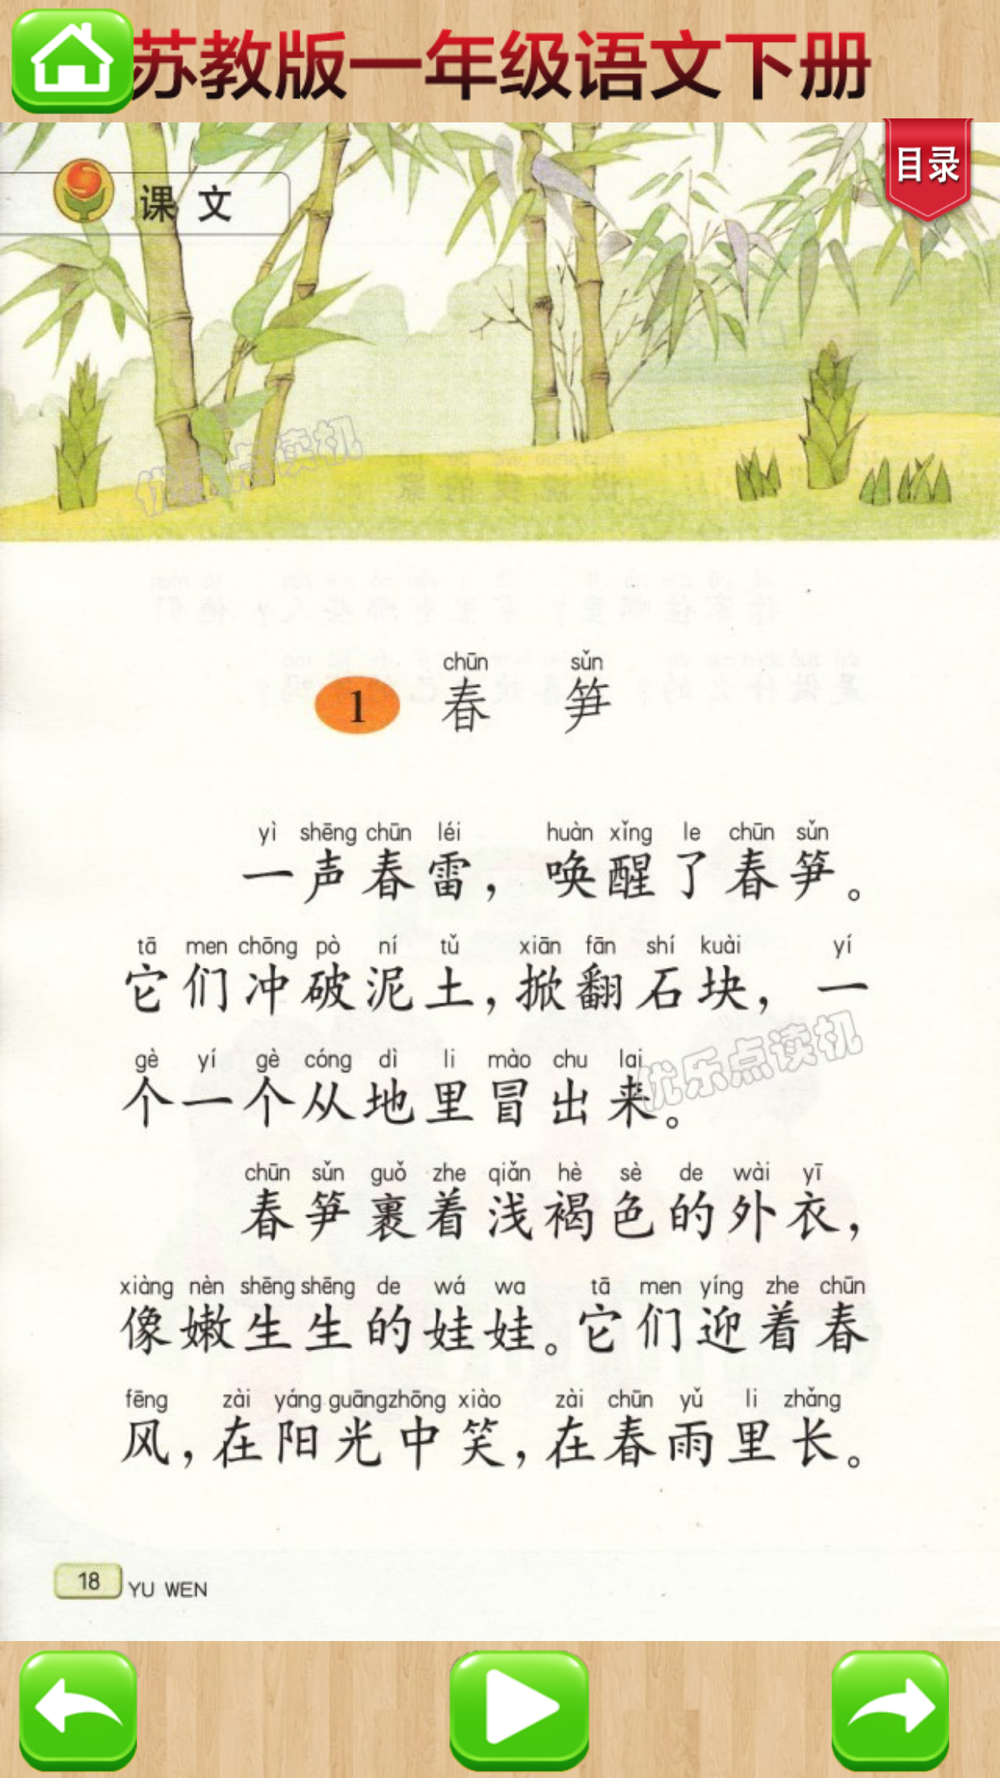 苏教版一年级语文下册
目录
课文
优乐点读机
chūn sǔn
1 春 笋
yì shēng chūn léi huàn xǐng le chūn sǔn
一声春雷，唤醒了春笋。
tā men chōng pò ní tǔ xiān fān shí kuài yí
它们冲破泥土，掀翻石块，一
gè yí gè cóng dì li mào chu lai
个一个从地里冒出来。
优乐点读机
chūn sǔn guǒ zhe qiǎn hè sè de wài yī
春笋裹着浅褐色的外衣，
xiàng nèn shēng shēng de wá wa tā men yíng zhe chūn
像嫩生生的娃娃。它们迎着春
fēng zài yáng guāng zhōng xiào zài chūn yǔ li zhǎng
风，在阳光中笑，在春雨里长。
18 YU WEN